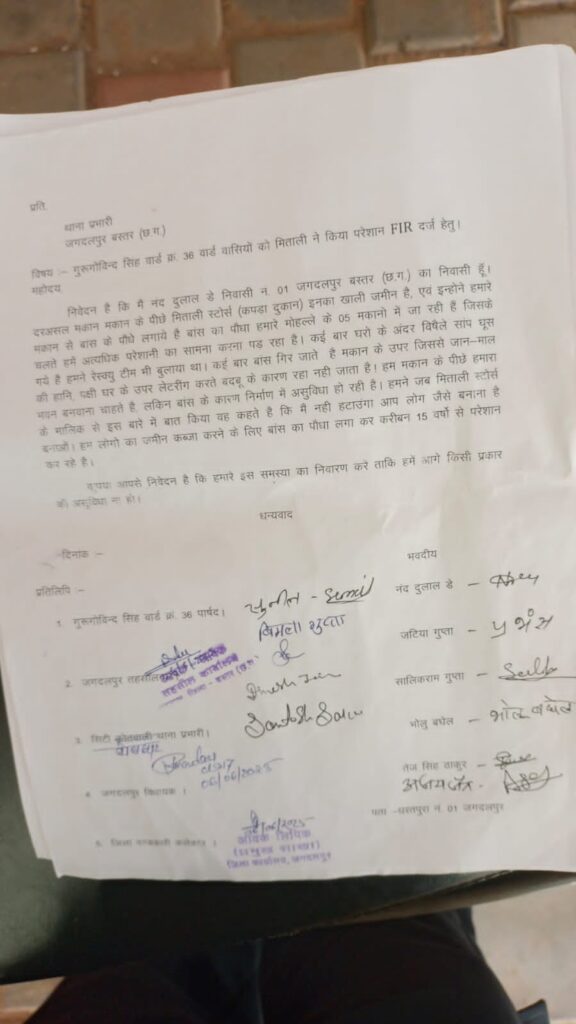 प्रति,
थाना प्रभारी
जगदलपुर बस्तर (छ.ग.)
विषय :– गुरूगोविन्द सिंह वार्ड क्र. 36 वार्ड वासियों को मिताली ने किया परेशान FIR दर्ज हेतु।
महोदय,
निवेदन है कि मैं नंद दुलाल डे निवासी नं. 01 जगदलपुर बस्तर (छ.ग.) का निवासी हूँ।
दरअसल मकान मकान के पीछे मिताली स्टोर्स (कपडा दुकान) इनका खाली जमीन है, एवं इन्होने हमारे
मकान से बास के पौधे लगाये है बांस का पौधा हमारे मोहल्ले के 05 मकानो में जा रही हैं जिसके
चलते हमें अत्यधिक परेशानी का सामना करना पड़ रहा है। कई बार घरो के अंदर विषैले सांप घूस
गये है हमने रेस्क्यु टीम भी बुलाया था। कई बार बांस गिर जाते है मकान के उपर जिससे जान–माल
की हानि, पक्षी घर के उपर लेटरीग करते बदबू के कारण रहा नही जाता है। हम मकान के पीछे हमारा
भवन बनवाना चाहते है, लकिन बांस के कारण निर्माण में असुविधा हो रही है। हमने जब मिताली स्टोर्स
के मालिक से इस बारे में बात किया वह कहते है कि मै नही हटाउंगा आप लोग जैसे बनाना है
बनाओ। हम लोगो का जमीन कब्जा करने के लिए बांस का पौधा लगा कर करीबन 15 वर्षो से परेशान
कर रहे है।
कृपया आपसे निवेदन है कि हमारे इस समस्या का निवारण करे ताकि हमें आगे किसी प्रकार
की असुविधा ना हो।
धन्यवाद
दिनांक :–
भवदीय
प्रतिलिपि :–
नंद दुलाल डे –
1. गुरूगोविन्द सिंह वार्ड क्र. 36 पार्षद।
सुनील – Sunil
विमला गुप्ता
जटिया गुप्ता –
2. जगदलपुर तहसील
तहसील कार्यालय
जिला - बस्तर (छ.ग.)
सालिकराम गुप्ता –
Santosh
3. सिटी कोतवाली थाना प्रभारी।
भोलु बघेल – भोलू बघेल
06/06/2025
तेज सिंह ठाकुर –
4. जगदलपुर विधायक।
पता –धरतपुरा नं. 01 जगदलपुर
5. जिला कलेक्टर।
/06/2025
आवक लिपिक
जिला कार्यालय, जगदलपुर